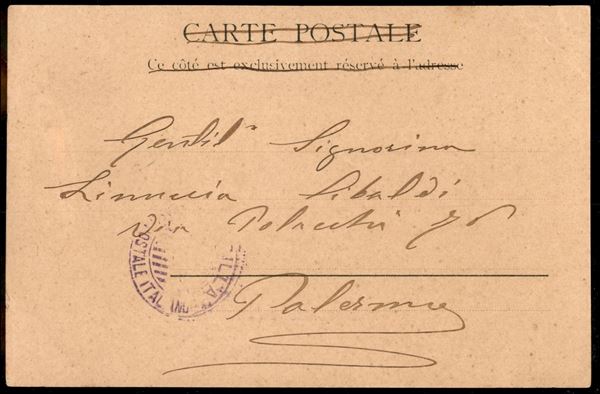 CARTE POSTALE
Ce côté est exclusivement réservé à l'adresse
Gentilᵃ Signorina
Linuccia Sibaldi
via
Palermo
OSTALE ITAL